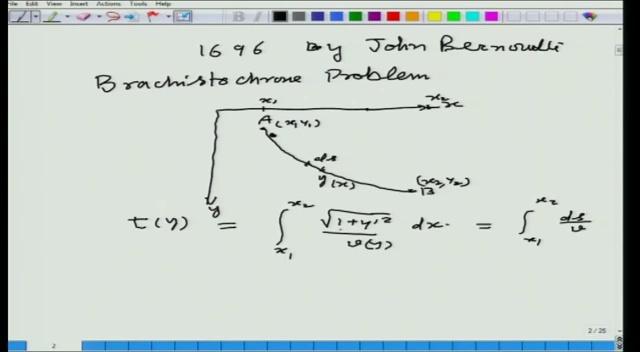 Edit View Insert Actions Tools Help
1696 by John Bernoulli
Brachistochrone Problem
x₁ x₂ x
A (x₁, y₁)
ds
y(x)
(x₂, y₂)
B
y
t(y) = ∫_{x₁}^{x₂} √(1+y'²) / v(y) dx = ∫_{x₁}^{x₂} ds/v
2 / 25
2